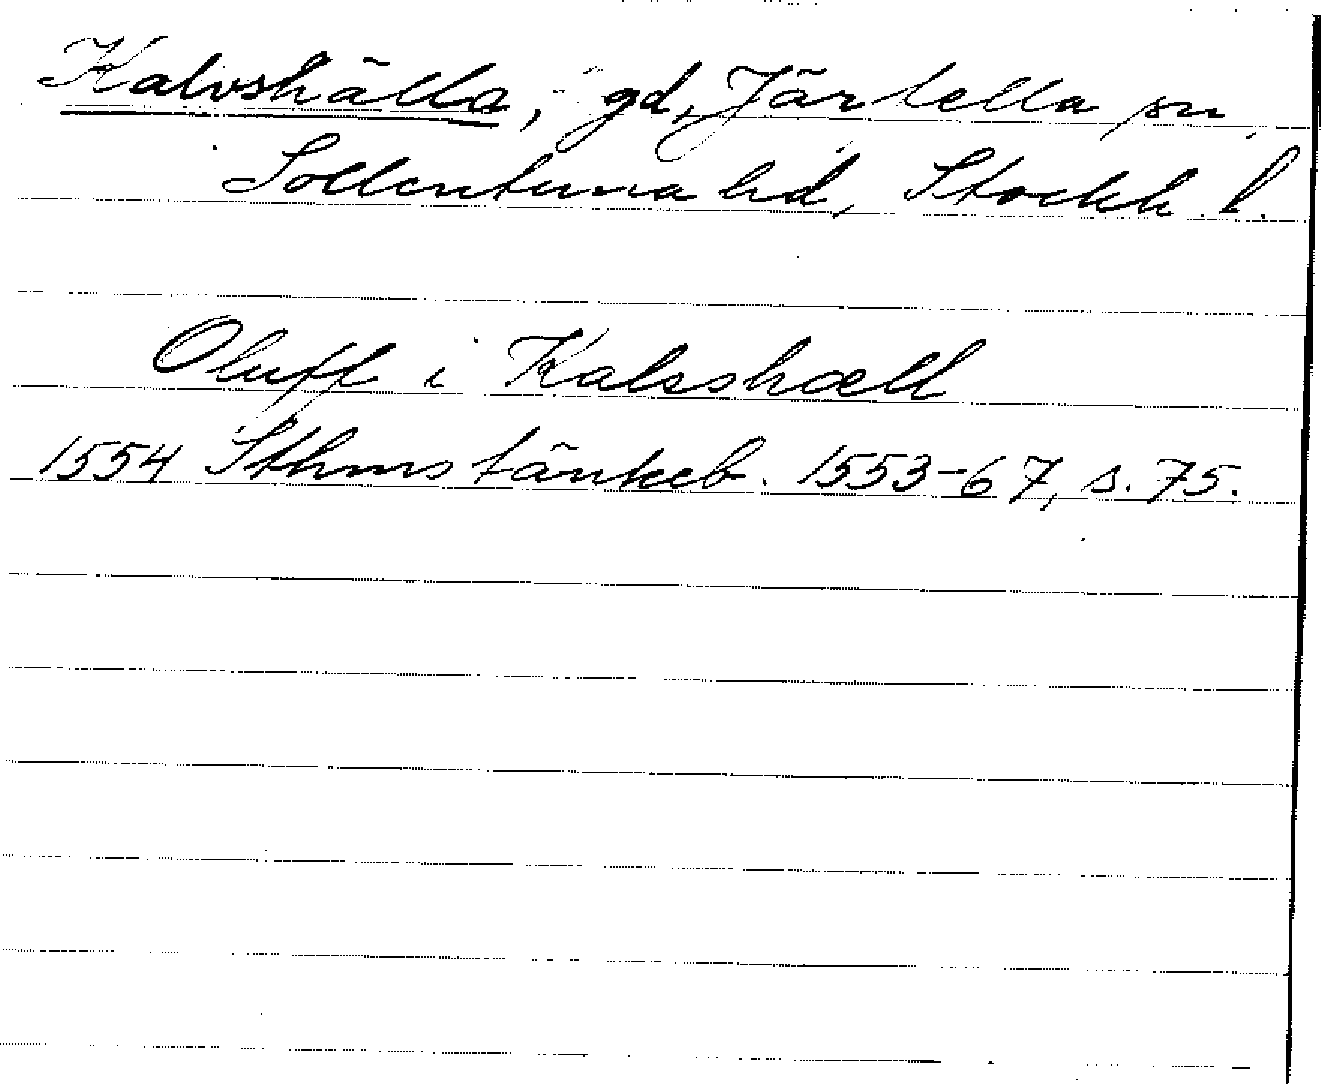 Kalvshälla, gd, Järfella sn
Sollentuna hd, Stockh. l.
Oluff i Kalsshæll
1554 Sthms tänkeb. 1553-67, s. 75.